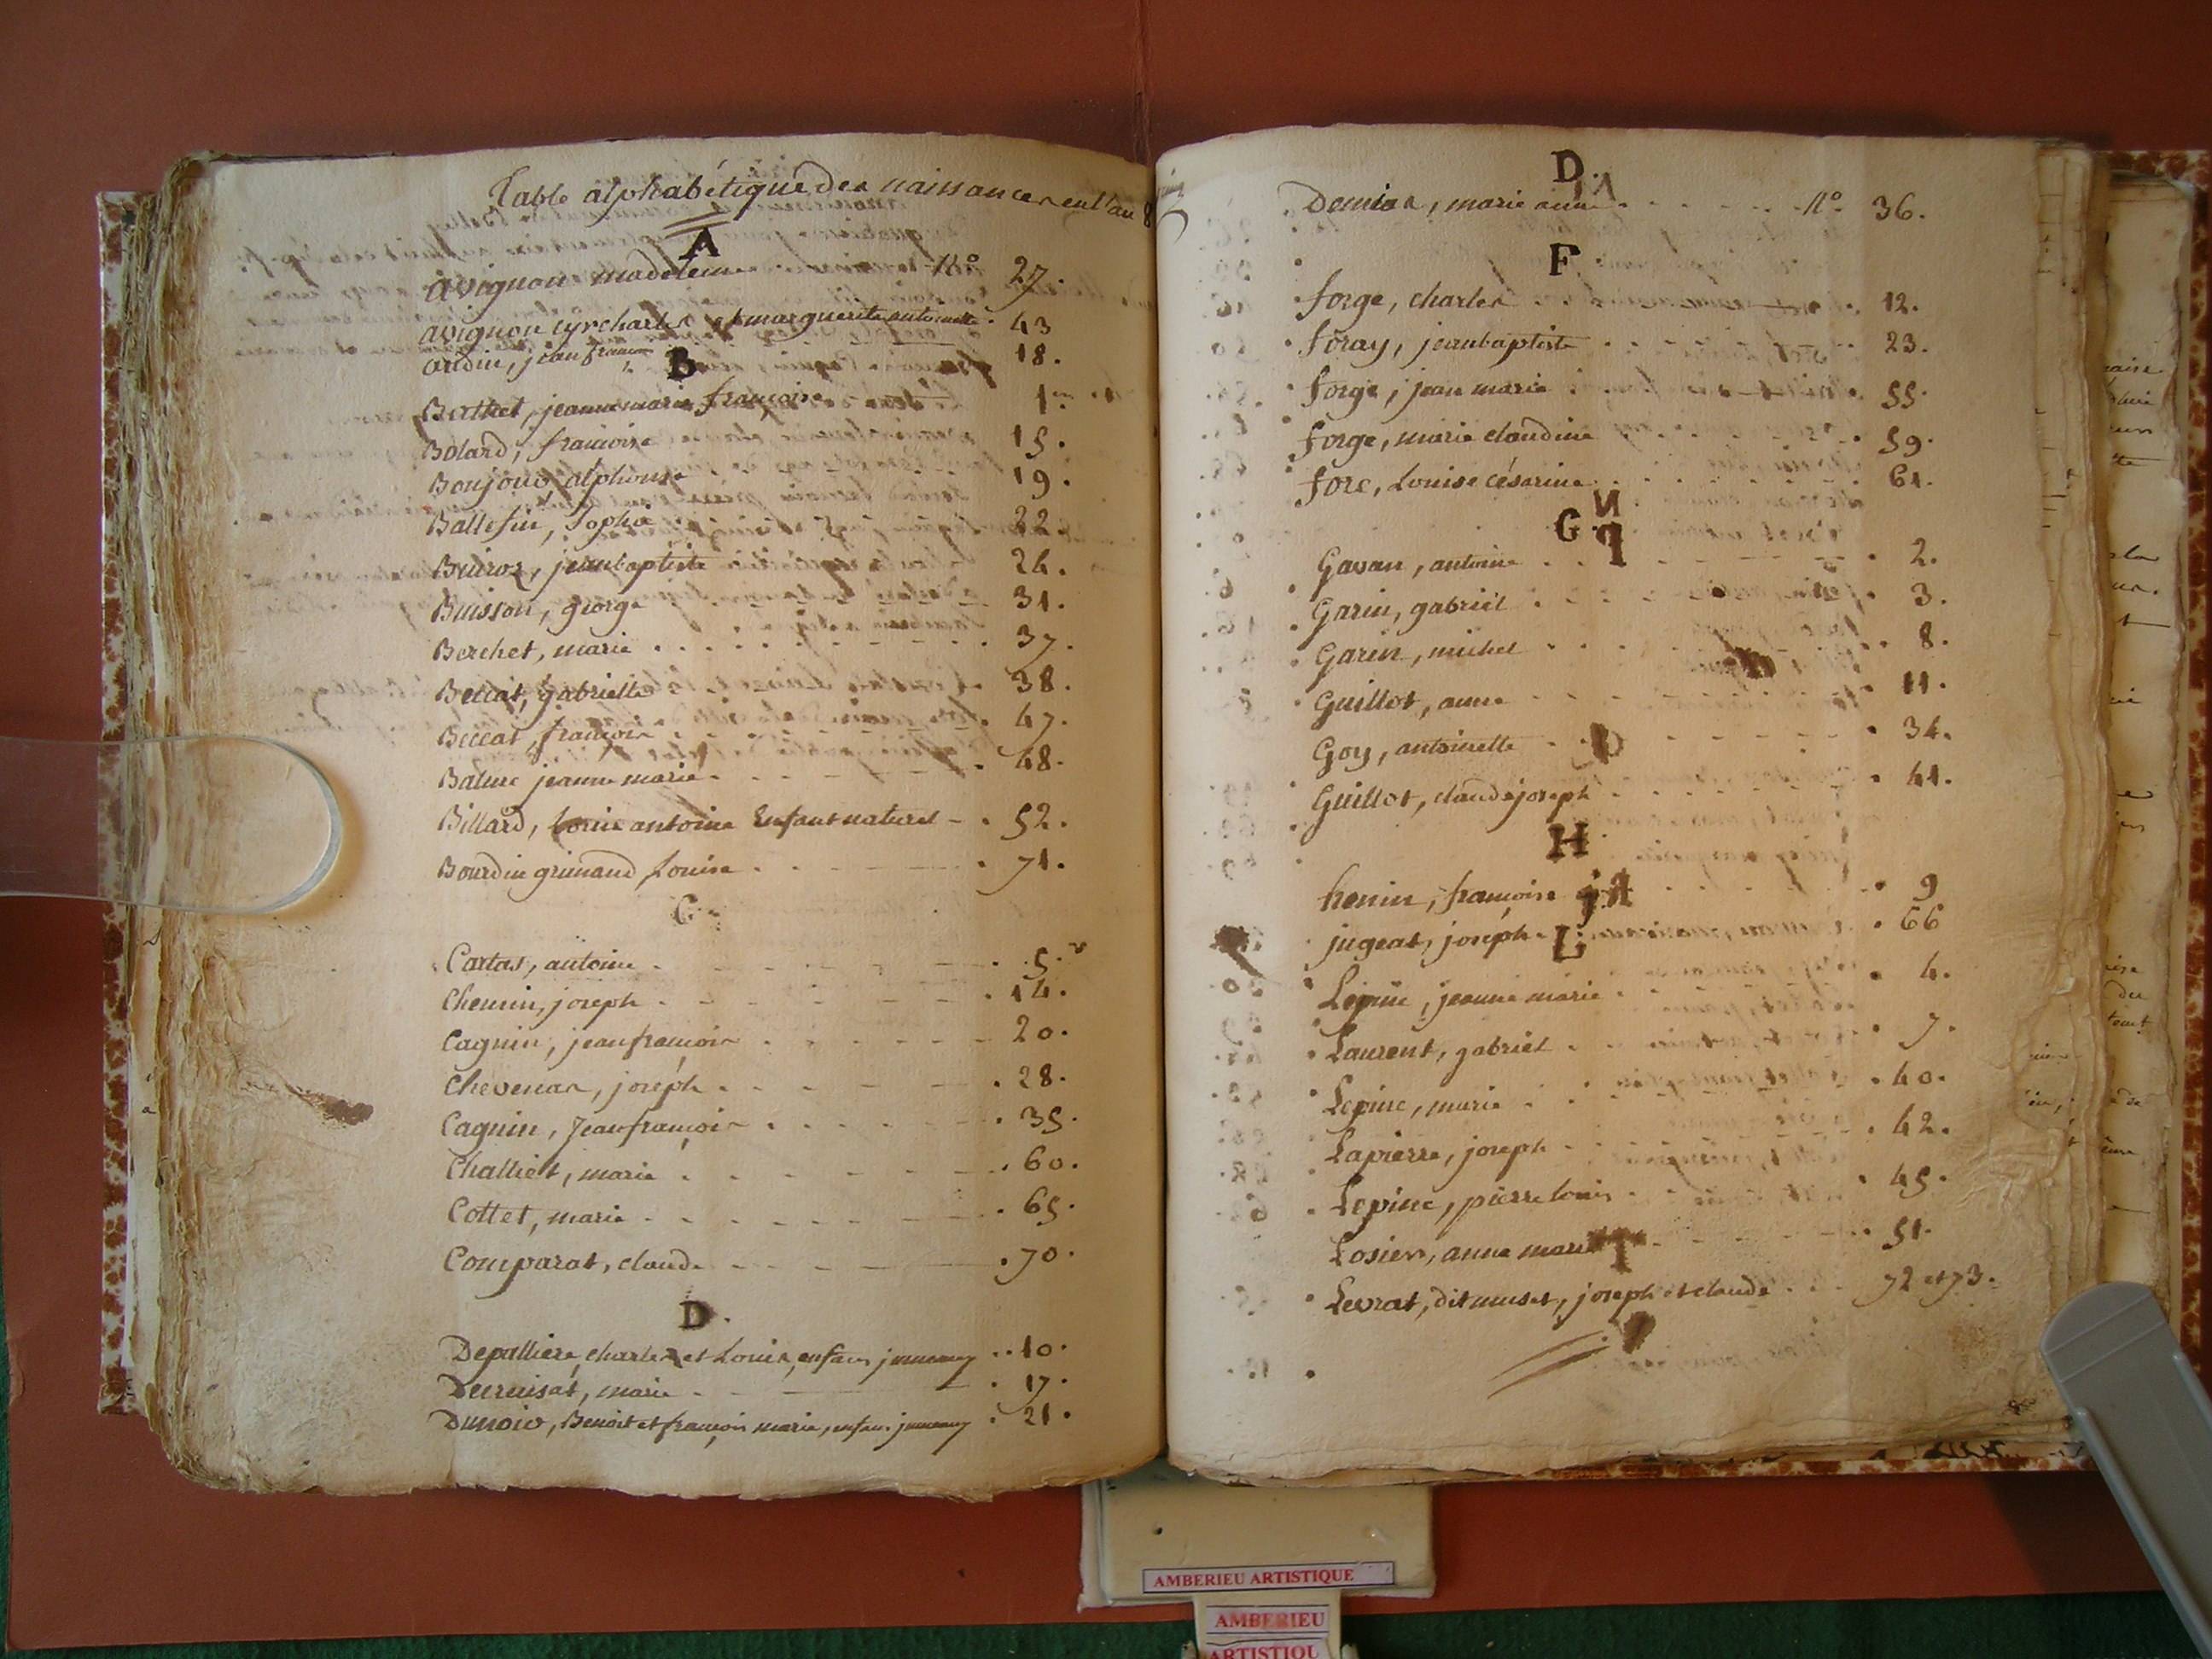 Table alphabétique des naissances en l'an 8
A
avignon madeleine N° 27.
avignon cyr charles et marguerite antoinette. 43
ardin, jean françois 18.
B
Berthet, jeanne marie françoise 1er
Bolard, françoise 15.
Bonjour alphonse 19.
Ballefin, Sophie 22.
Buiroz, jeanbaptiste 26.
Buisson, george 31.
Berchet, marie 37.
Beccat, gabrielle 38.
Beccat, françois 47.
Balme jeanne marie 48.
Billard, Louis antoine Enfant naturel 52.
Bourdin grimaud Louise 71.
C.
Cartas, antoine 5.
Chemin, joseph 14.
Cagnin, jean françois 20.
Chevenas, joseph 28.
Cagnin, Jean françois 35.
Challiet, marie 60.
Cottet, marie 65.
Comparat, claude 70.
D.
Depalliere, charles et Louis, enfans jumeaux 10.
Decruisat, marie 17.
Dunoir, Benoit et françois marie, enfans jumeaux 21.
D.
Demias, marie anne N° 36.
F
forge, charles 12.
foray, jeanbaptiste 23.
forge, jean marie 55.
forge, marie claudine 59.
fore, Louise césarine 61.
G.
Gavan, antoine 2.
Garin, gabriel 3.
Garin, michel 8.
Guillot, anne 11.
Goy, antoinette 34.
Guillot, claude joseph 41.
H
henin, françoise 9
jugeat, joseph 66
L
Lépine, jeanne marie 4.
Laurent, gabriel 7.
Lepine, marie 40.
Lapierre, joseph 42.
Lepine, pierre louis 45.
Losier, anne marie 51.
Levrat, dit muset, joseph et claude 72 et 73.
AMBERIEU ARTISTIQUE
AMBERIEU
ARTISTIQU